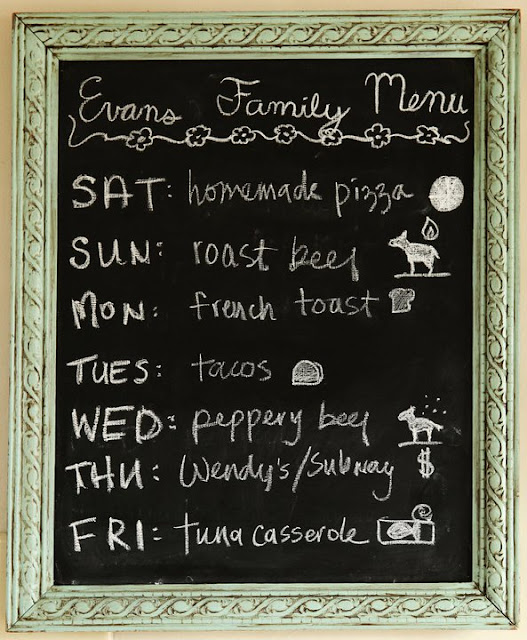 Evans Family Menu
SAT: homemade pizza
SUN: roast beef
MON: french toast
TUES: tacos
WED: peppery beef
THU: Wendy's/Subway $
FRI: tuna casserole